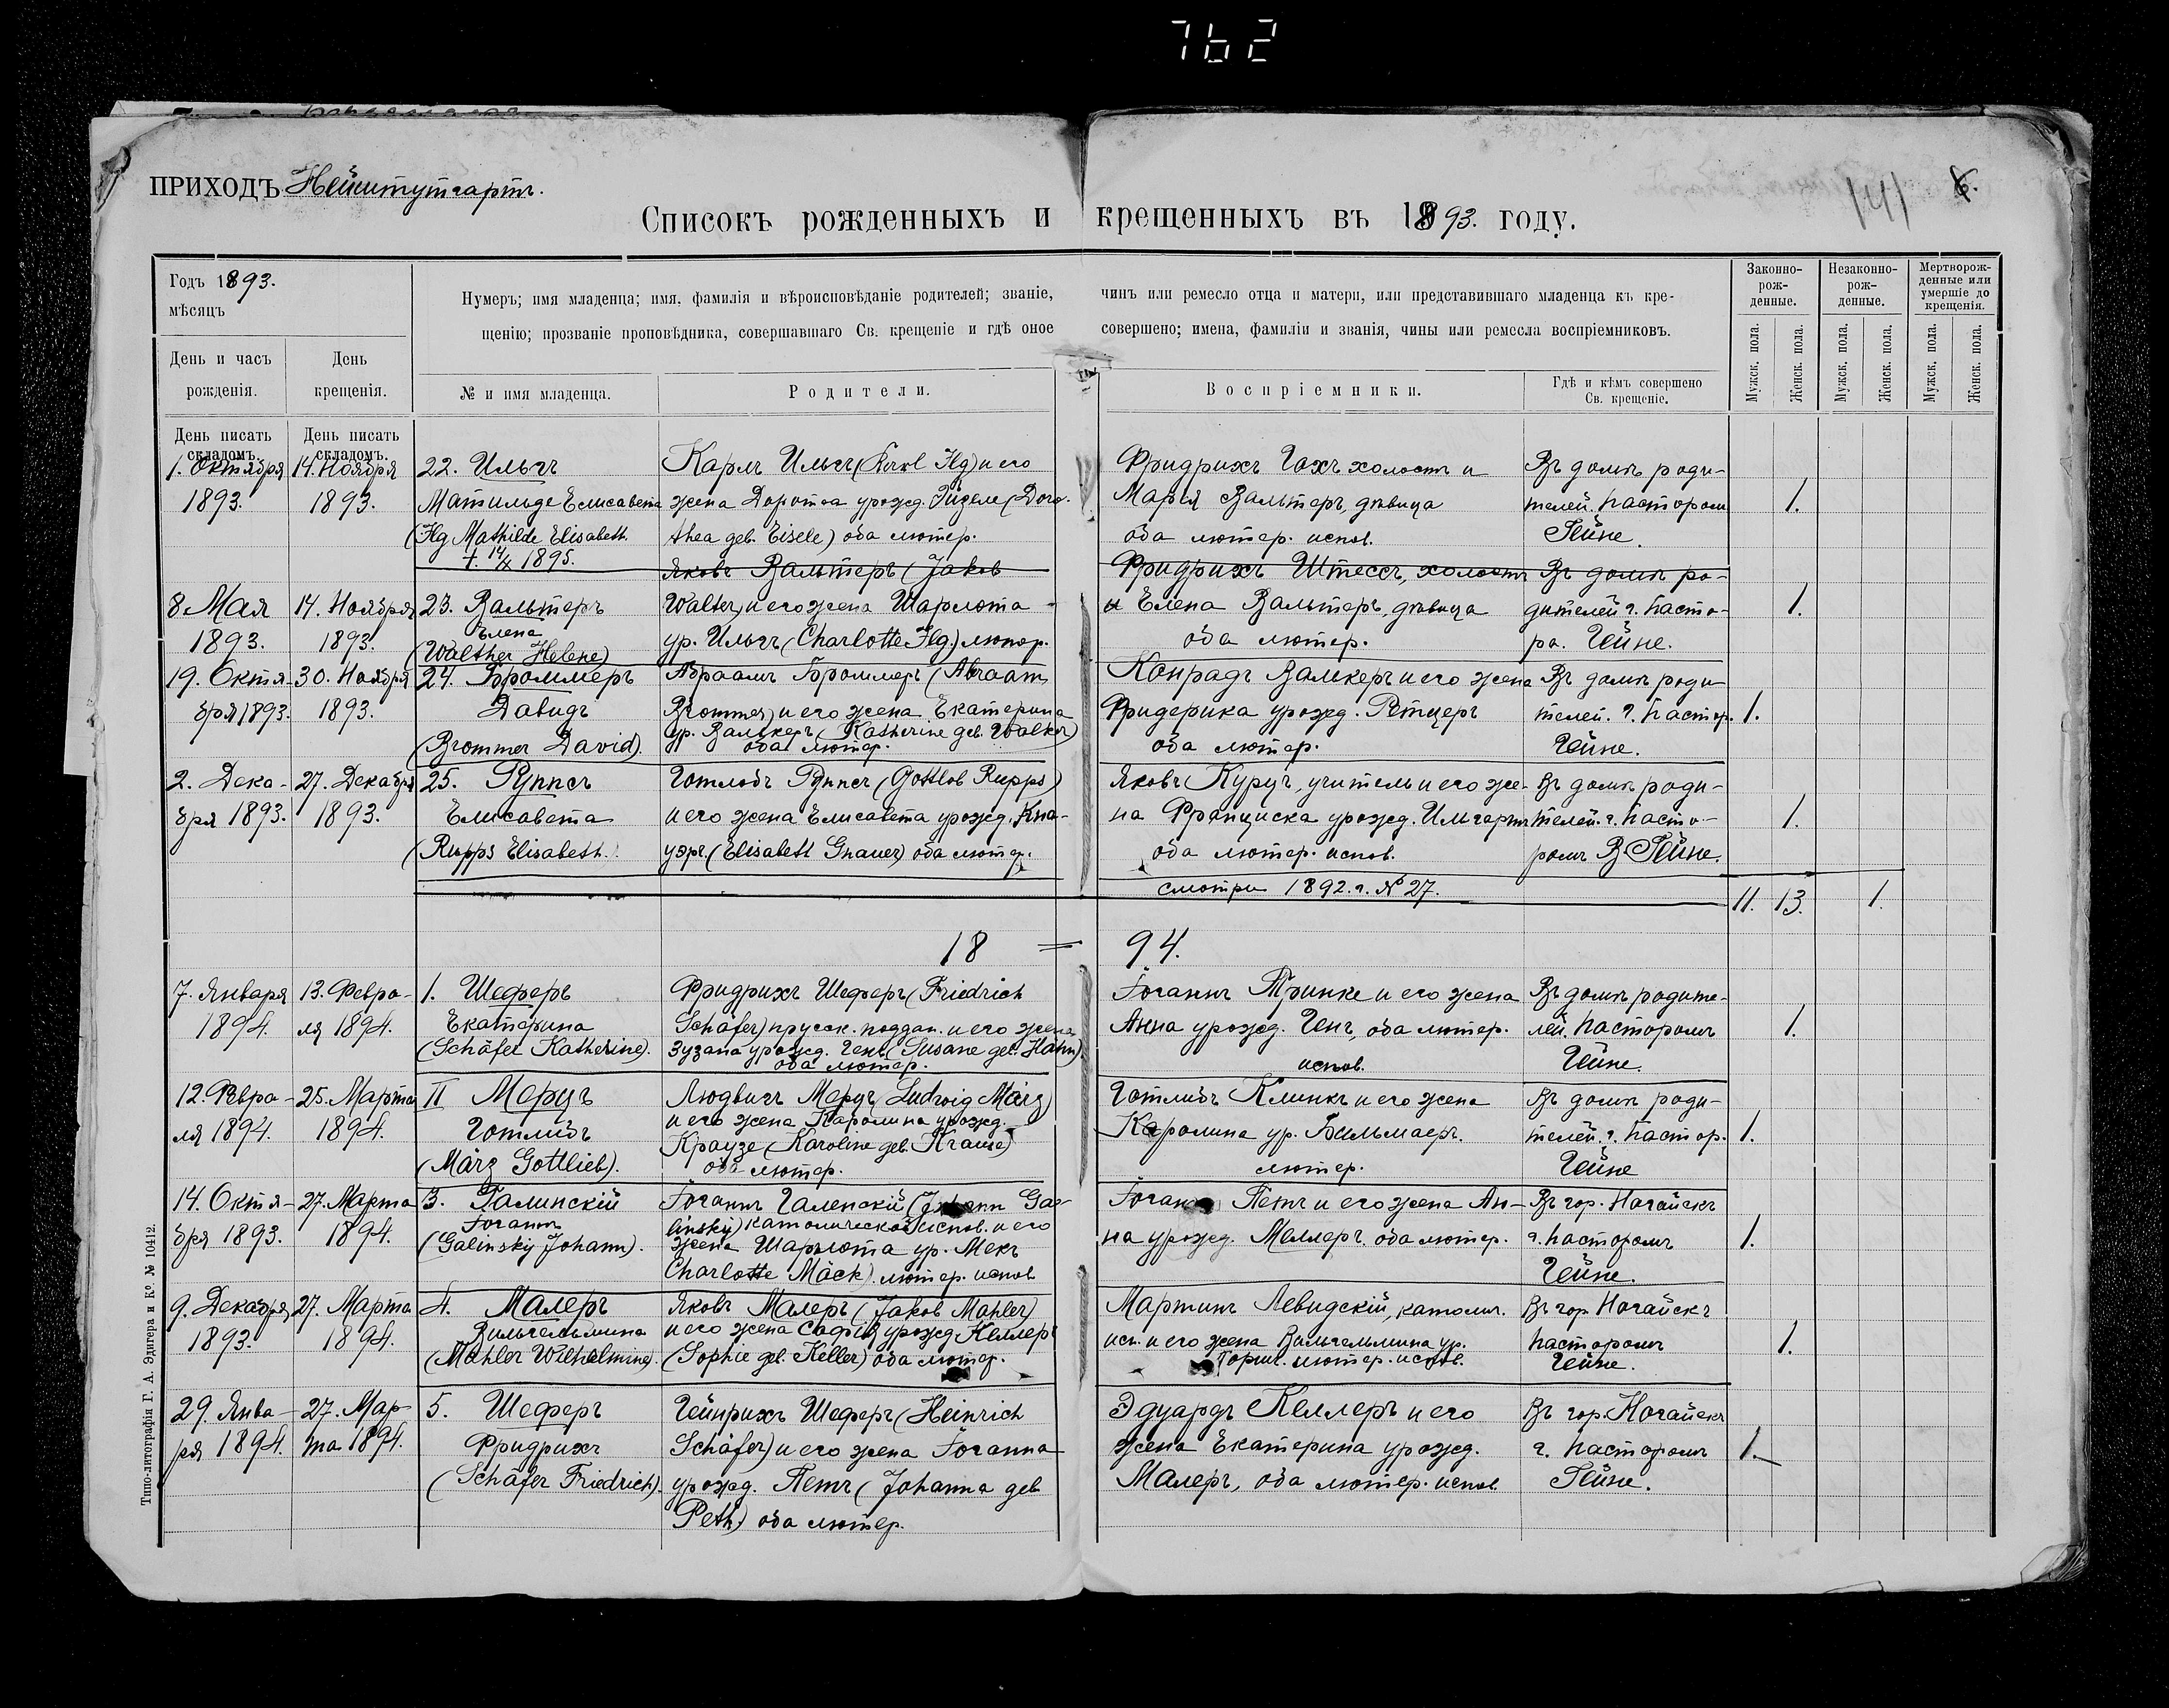 762
ПРИХОДЪ Нейштутгартъ.
141
6.
Списокъ рожденныхъ и крещенныхъ въ 1893. году.
Годъ 1893.
мѣсяцъ
Нумеръ; имя младенца; имя, фамилія и вѣроисповѣданіе родителей; званіе, чинъ или ремесло отца и матери, или представившаго младенца къ кре-
щенію; прозваніе проповѣдника, совершавшаго Св. крещеніе и гдѣ оное совершено; имена, фамиліи и званія, чины или ремесла воспріемниковъ.
Законно-
рож-
денные.
Незаконно-
рож-
денные.
Мертворож-
денные или
умершіе до
крещенія.
День и часъ
рожденія.
День
крещенія.
№ и имя младенца.
Родители.
Воспріемники.
Гдѣ и кѣмъ совершено
Св. крещеніе.
Мужск. пола.
Женск. пола.
Мужск. пола.
Женск. пола.
Мужск. пола.
Женск. пола.
День писать
складомъ.
День писать
складомъ.
1. Октября
1893.
14. Ноября
1893.
22. Ильгъ
Матильде Елисавета
(Ilg Mathilde Elisabeth.
† 14/X 1895.
Карлъ Ильгъ (Karl Ilg) и его
жена Доротеа урожд. Эйзеле (Doro-
thea geb. Eisele) оба лютер.
Фридрихъ Гохъ холостъ и
Марія Вальтеръ, дѣвица
оба лютер. испов.
Въ домѣ роди-
телей пасторомъ
Гейне.
1.
8 Мая
1893.
14. Ноября
1893.
23. Вальтеръ
Елена
(Walther Helene)
Яковъ Вальтеръ (Jakob
Walter) и его жена Шарлота
ур. Ильгъ (Charlotte Ilg.) лютер.
Фридрихъ Штессъ, холостъ
и Елена Вальтеръ, дѣвица
оба лютер.
Въ домѣ ро-
дителей г. пасто-
ра. Гейне.
1.
19. Октя-
бря 1893.
30. Ноября
1893.
24. Броммеръ
Давидъ
(Brommer David)
Абраамъ Броммеръ (Abraam
Brommer) и его жена Екатерина
ур. Валькеръ (Katherine geb. Walker)
оба лютер.
Конрадъ Валкеръ и его жена
Фридерика урожд. Ретцеръ
оба лютер.
Въ домѣ роди-
телей. г. пастор.
Гейне.
1.
2. Дека-
бря 1893.
27. Декабря
1893.
25. Руппсъ
Елисавета
(Rupps Elisabeth.)
Готлобъ Руппсъ (Gottlob Rupps)
и его жена Елисавета урожд. Кна-
уэръ (Elisabett Gnauer) оба лютер.
Яковъ Куруъ, учитель и его же-
на Франциска урожд. Имгартъ
оба лютер. испов.
Въ домѣ роди-
телей. г. пасто-
ромъ В. Гейне.
1.
смотри 1892. г. № 27.
11. 13. 1.
18 = 94.
7. Января
1894.
13. Февра-
ля 1894.
1. Шеферъ
Екатерина
(Schäfer Katherine).
Фридрихъ Шеферъ (Friedrich
Schäfer) прусск. поддан. и его жена
Зузана урожд. Генъ (Susane geb. Hähn)
оба лютер.
Іоганнъ Тринке и его жена
Анна урожд. Генъ, оба лютер.
испов.
Въ домѣ родите-
лей. пасторомъ
Гейне.
1.
12. Февра-
ля 1894.
25. Марта
1894.
II Мерцъ
Готлибъ
(März Gottlieb).
Людвигъ Мерцъ (Ludwig März)
и его жена Каролина урожд.
Краузе (Karoline geb. Krause)
оба лютер.
Готлибъ Клинкъ и его жена
Каролина ур. Бильмаеръ.
лютер.
Въ домѣ роди-
телей. г. пастор.
Гейне
1.
14. Октя-
бря 1893.
27. Марта
1894.
3. Галинскій
Іоганнъ
(Galinskÿ Johann).
Іоганнъ Галенскій (Johann Ga-
linskÿ) католической испов. и его
жена Шарлота ур. Мекъ
Charlotte Mäck). лютер. испов
Іоганъ Петъ и его жена Ан-
на урожд. Меллеръ. оба лютер.
Въ гор. Ногайскъ
г. пасторомъ
Гейне.
1.
9. Декабря
1893.
27. Марта
1894.
4. Малеръ
Вильгельмина
(Mahler Wilhelmine).
Яковъ Малеръ (Jakob Mahler)
и его жена Софія урожд. Келлеръ
(Sophie geb. Keller) оба лютер.
Мартинъ Левидскій, католич.
исп. и его жена Вильгельмина ур.
лютер. испов.
Въ гор. Ногайскъ
пасторомъ
Гейне.
1.
29. Янва-
ря 1894.
27. Мар-
та 1894.
5. Шеферъ
Фридрихъ
(Schäfer Friedrich).
Гейнрихъ Шеферъ (Heinrich
Schäfer) и его жена Іоганна
урожд. Петъ (Johanna geb
Peth) оба лютер.
Эдуардъ Келлеръ и его
жена Екатерина урожд.
Малеръ, оба лютер. испов
Въ гор. Ногайскъ
г. пасторомъ
Гейне.
1.
Типо-литографія Г. А. Эдигера и Ко. № 10412.